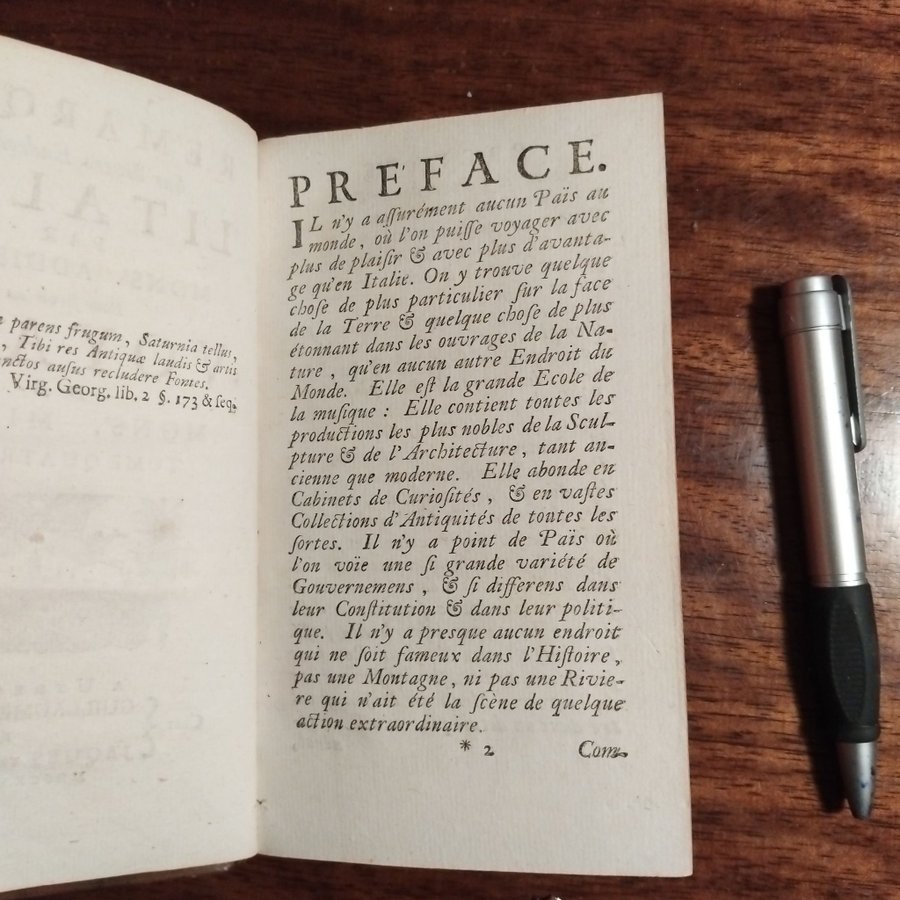 parens frugum, Saturnia tellus,
, Tibi res Antiquæ laudis & artis
nctos ausus recludere Fontes.
Virg. Georg. lib. 2 §. 173 & seq.
PRÉFACE.
IL n'y a aſſurément aucun Païs au
monde, où l'on puiſſe voyager avec
plus de plaiſir & avec plus d'avanta-
ge qu'en Italie. On y trouve quelque
choſe de plus particulier ſur la face
de la Terre & quelque choſe de plus
étonnant dans les ouvrages de la Na-
ture, qu'en aucun autre Endroit du
Monde. Elle eſt la grande Ecole de
la muſique : Elle contient toutes les
productions les plus nobles de la Scul-
pture & de l'Architecture, tant an-
cienne que moderne. Elle abonde en
Cabinets de Curioſités, & en vaſtes
Collections d'Antiquités de toutes les
ſortes. Il n'y a point de Païs où
l'on voïe une ſi grande variété de
Gouvernemens, & ſi differens dans
leur Conſtitution & dans leur politi-
que. Il n'y a presque aucun endroit
qui ne ſoit fameux dans l'Hiſtoire,
pas une Montagne, ni pas une Rivie-
re qui n'ait été la ſcène de quelque
action extraordinaire.
* 2 Com-